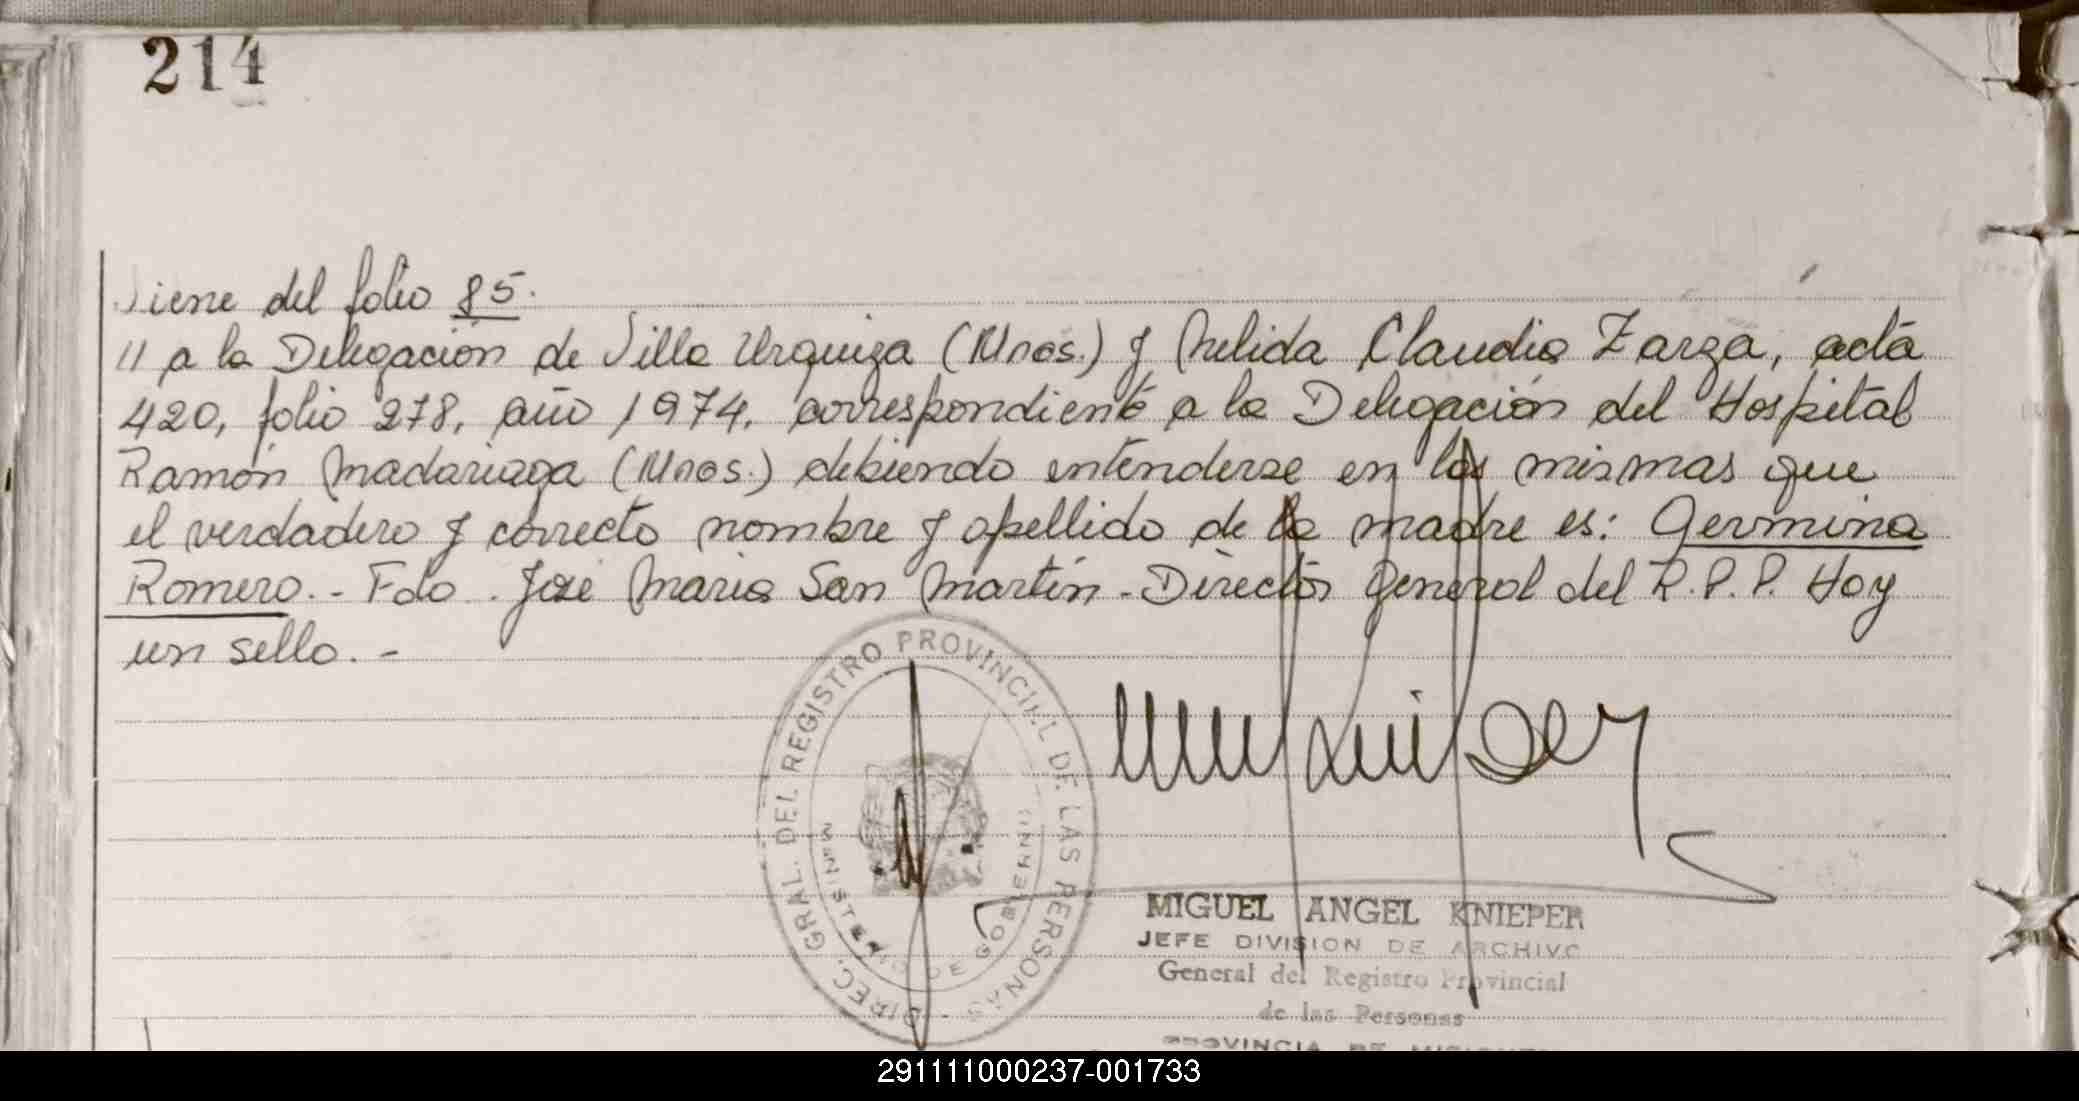 214
Viene del folio 85.
// a la Delegación de Villa Urquiza (Mnes.) y Nelida Claudia Zarza, acta
420, folio 278, año 1974, correspondiente a la Delegación del Hospital
Ramón Madariaga (Mnes.) debiendo entenderse en las mismas que
el verdadero y correcto nombre y apellido de la madre es: Germina
Romero. - Fdo. José Maria San Martín - Director General del R.P.P. Hoy
un sello. -
DIREC. GRAL. DEL REGISTRO PROVINCIAL DE LAS PERSONAS
MINISTERIO DE GOBIERNO
MIGUEL ANGEL KNIEPER
JEFE DIVISION DE ARCHIVO
General del Registro Provincial
de las Personas
PROVINCIA DE MISIONES
291111000237-001733